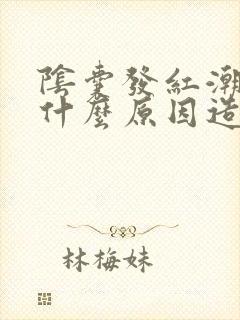 陰囊發紅潮
什麼原因造
林梅妹